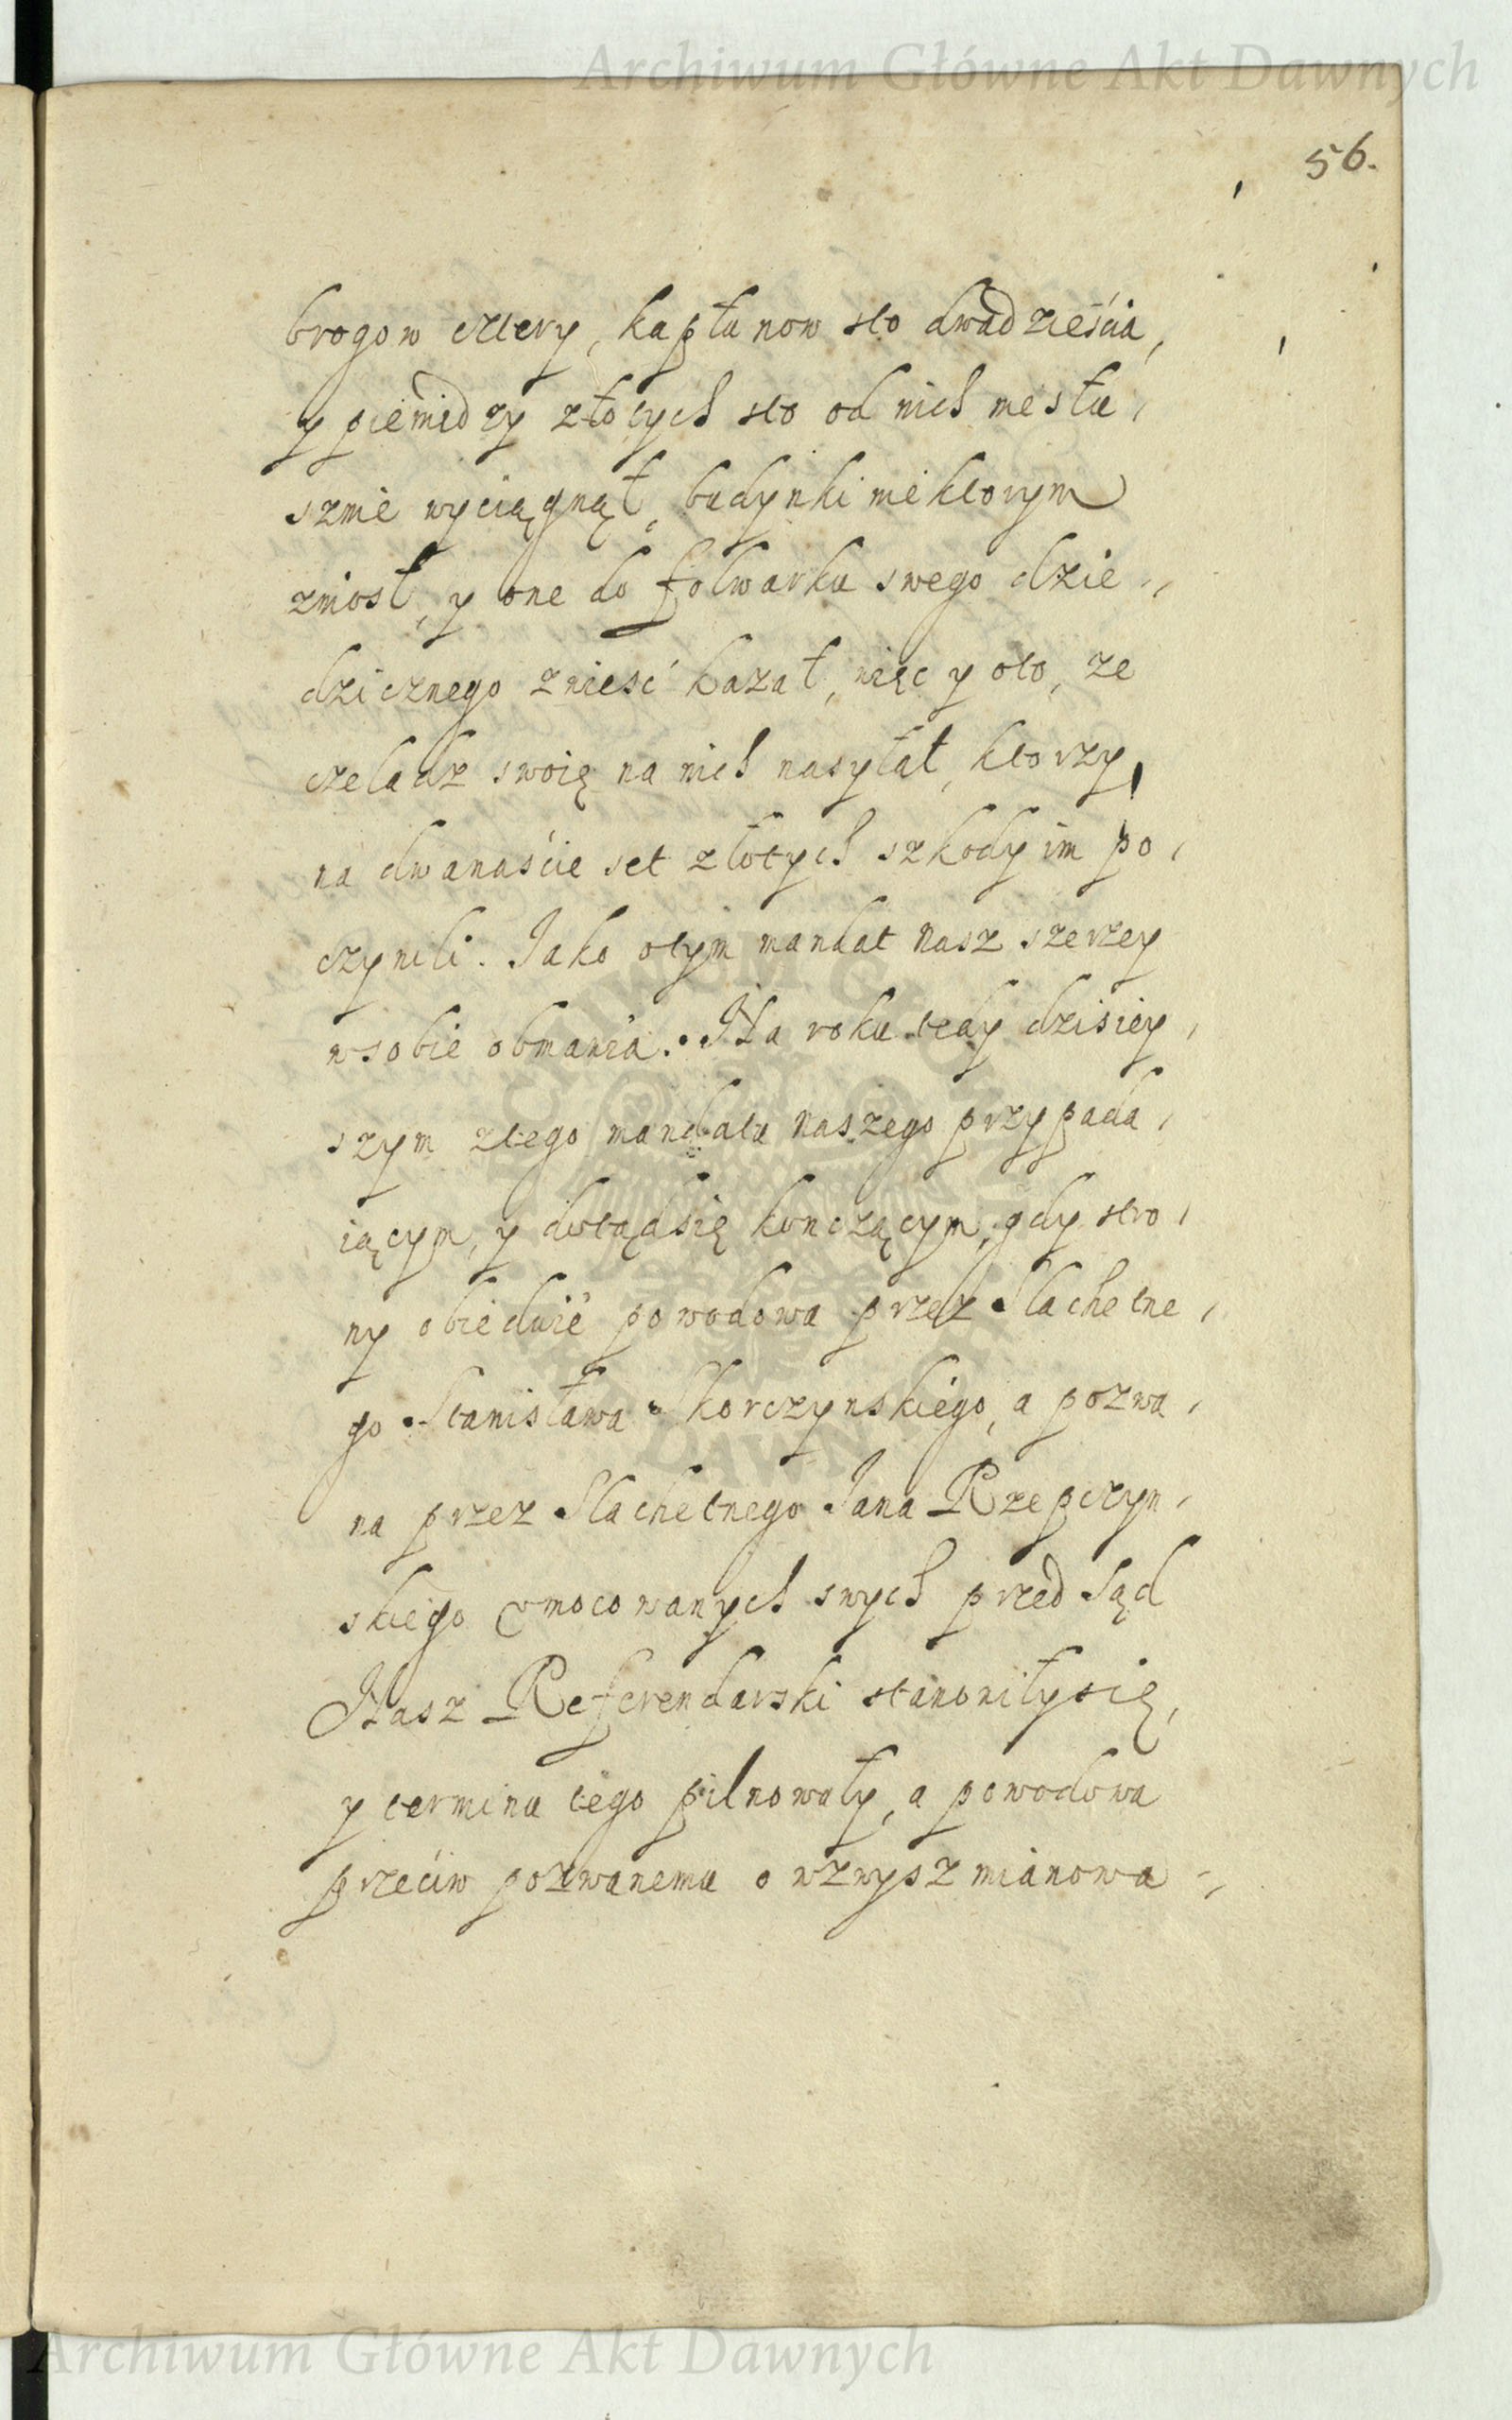 Archiwum Główne Akt Dawnych
56.
brogow cztery, kapłunow sto dwadzieścia,
y pieniedzy złotych sto od nich niesłu,
sznie wyciągnął, budynki niektorym
zniosł, y one do folwarku swego dzie-,
dzicznego znieść kazał, więc y oto, ze
czeladz swoię na nich nasyłał, ktorzy
na dwanaście set złotych szkody im po,
czynili. Jako otym mandat Nasz szerzey
wsobie obmawia. Na roku tedy dzisiey,
szym ztego mandatu Naszego przypada,
iącym, y dotądsię konczącym, gdy stro,
ny obiedwie powodowa przez Slachetne,
go Stanisława Skorczynskiego, a pozwa,
na przez Slachetnego Jana Rzepczyn,
skiego Umocowanych swych przed Sąd
Nasz Referendarski stanoniły się,
y terminu tego pilnowały, a powodowa
przećiw pozwanemu o wzwysz mianowa-,
Archiwum Główne Akt Dawnych